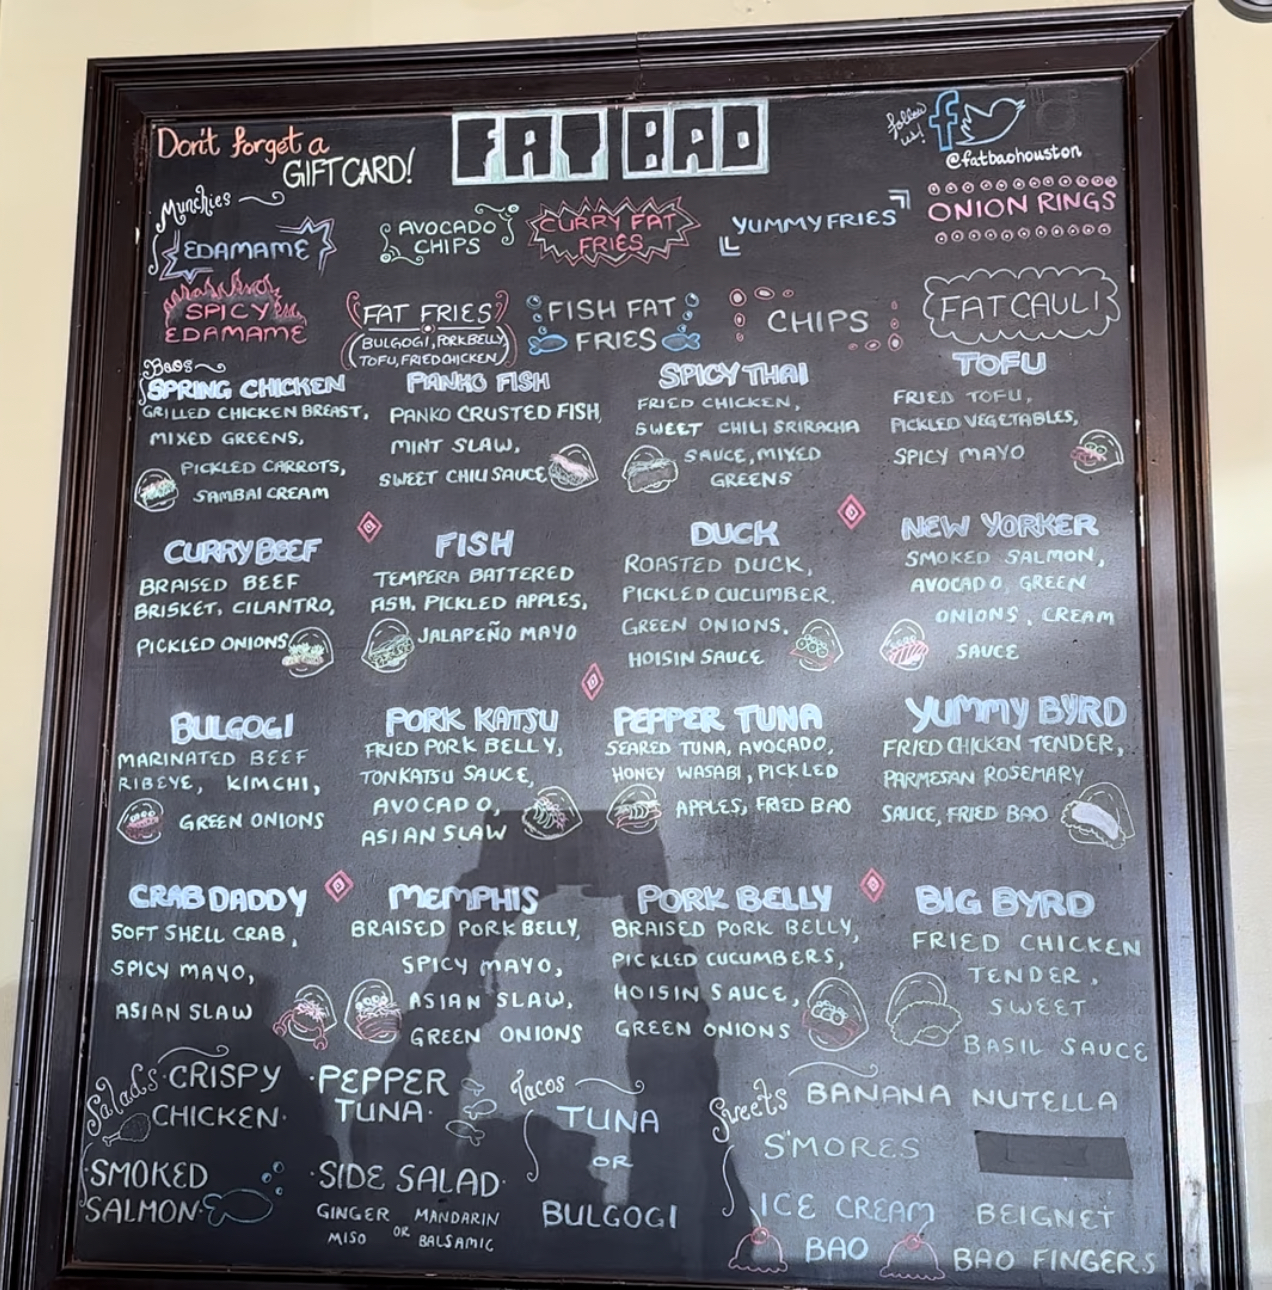 Don't forget a
GIFT CARD!
FAT BAO
follow us!
@fatbaohouston
Munchies
EDAMAME
AVOCADO
CHIPS
CURRY FAT
FRIES
YUMMY FRIES
ONION RINGS
SPICY
EDAMAME
FAT FRIES
BULGOGI, PORK BELLY
TOFU, FRIED CHICKEN
FISH FAT
FRIES
CHIPS
FAT CAULI
Baos
SPRING CHICKEN
GRILLED CHICKEN BREAST,
MIXED GREENS,
PICKLED CARROTS,
SAMBAI CREAM
PANKO FISH
PANKO CRUSTED FISH,
MINT SLAW,
SWEET CHILI SAUCE
SPICY THAI
FRIED CHICKEN,
SWEET CHILI SRIRACHA
SAUCE, MIXED
GREENS
TOFU
FRIED TOFU,
PICKLED VEGETABLES,
SPICY MAYO
CURRY BEEF
BRAISED BEEF
BRISKET, CILANTRO,
PICKLED ONIONS
FISH
TEMPERA BATTERED
FISH, PICKLED APPLES,
JALAPEÑO MAYO
DUCK
ROASTED DUCK,
PICKLED CUCUMBER,
GREEN ONIONS,
HOISIN SAUCE
NEW YORKER
SMOKED SALMON,
AVOCADO, GREEN
ONIONS, CREAM
SAUCE
BULGOGI
MARINATED BEEF
RIBEYE, KIMCHI,
GREEN ONIONS
PORK KATSU
FRIED PORK BELLY,
TONKATSU SAUCE,
AVOCADO,
ASIAN SLAW
PEPPER TUNA
SEARED TUNA, AVOCADO,
HONEY WASABI, PICKLED
APPLES, FRIED BAO
YUMMY BYRD
FRIED CHICKEN TENDER,
PARMESAN ROSEMARY
SAUCE, FRIED BAO
CRAB DADDY
SOFT SHELL CRAB,
SPICY MAYO,
ASIAN SLAW
MEMPHIS
BRAISED PORK BELLY,
SPICY MAYO,
ASIAN SLAW,
GREEN ONIONS
PORK BELLY
BRAISED PORK BELLY,
PICKLED CUCUMBERS,
HOISIN SAUCE,
GREEN ONIONS
BIG BYRD
FRIED CHICKEN
TENDER,
SWEET
BASIL SAUCE
Salads
·CRISPY
CHICKEN·
·PEPPER
TUNA·
·SMOKED
SALMON·
·SIDE SALAD·
GINGER MISO OR MANDARIN BALSAMIC
Tacos
TUNA
OR
BULGOGI
Sweets
BANANA NUTELLA
S'MORES
ICE CREAM
BAO
BEIGNET
BAO FINGERS